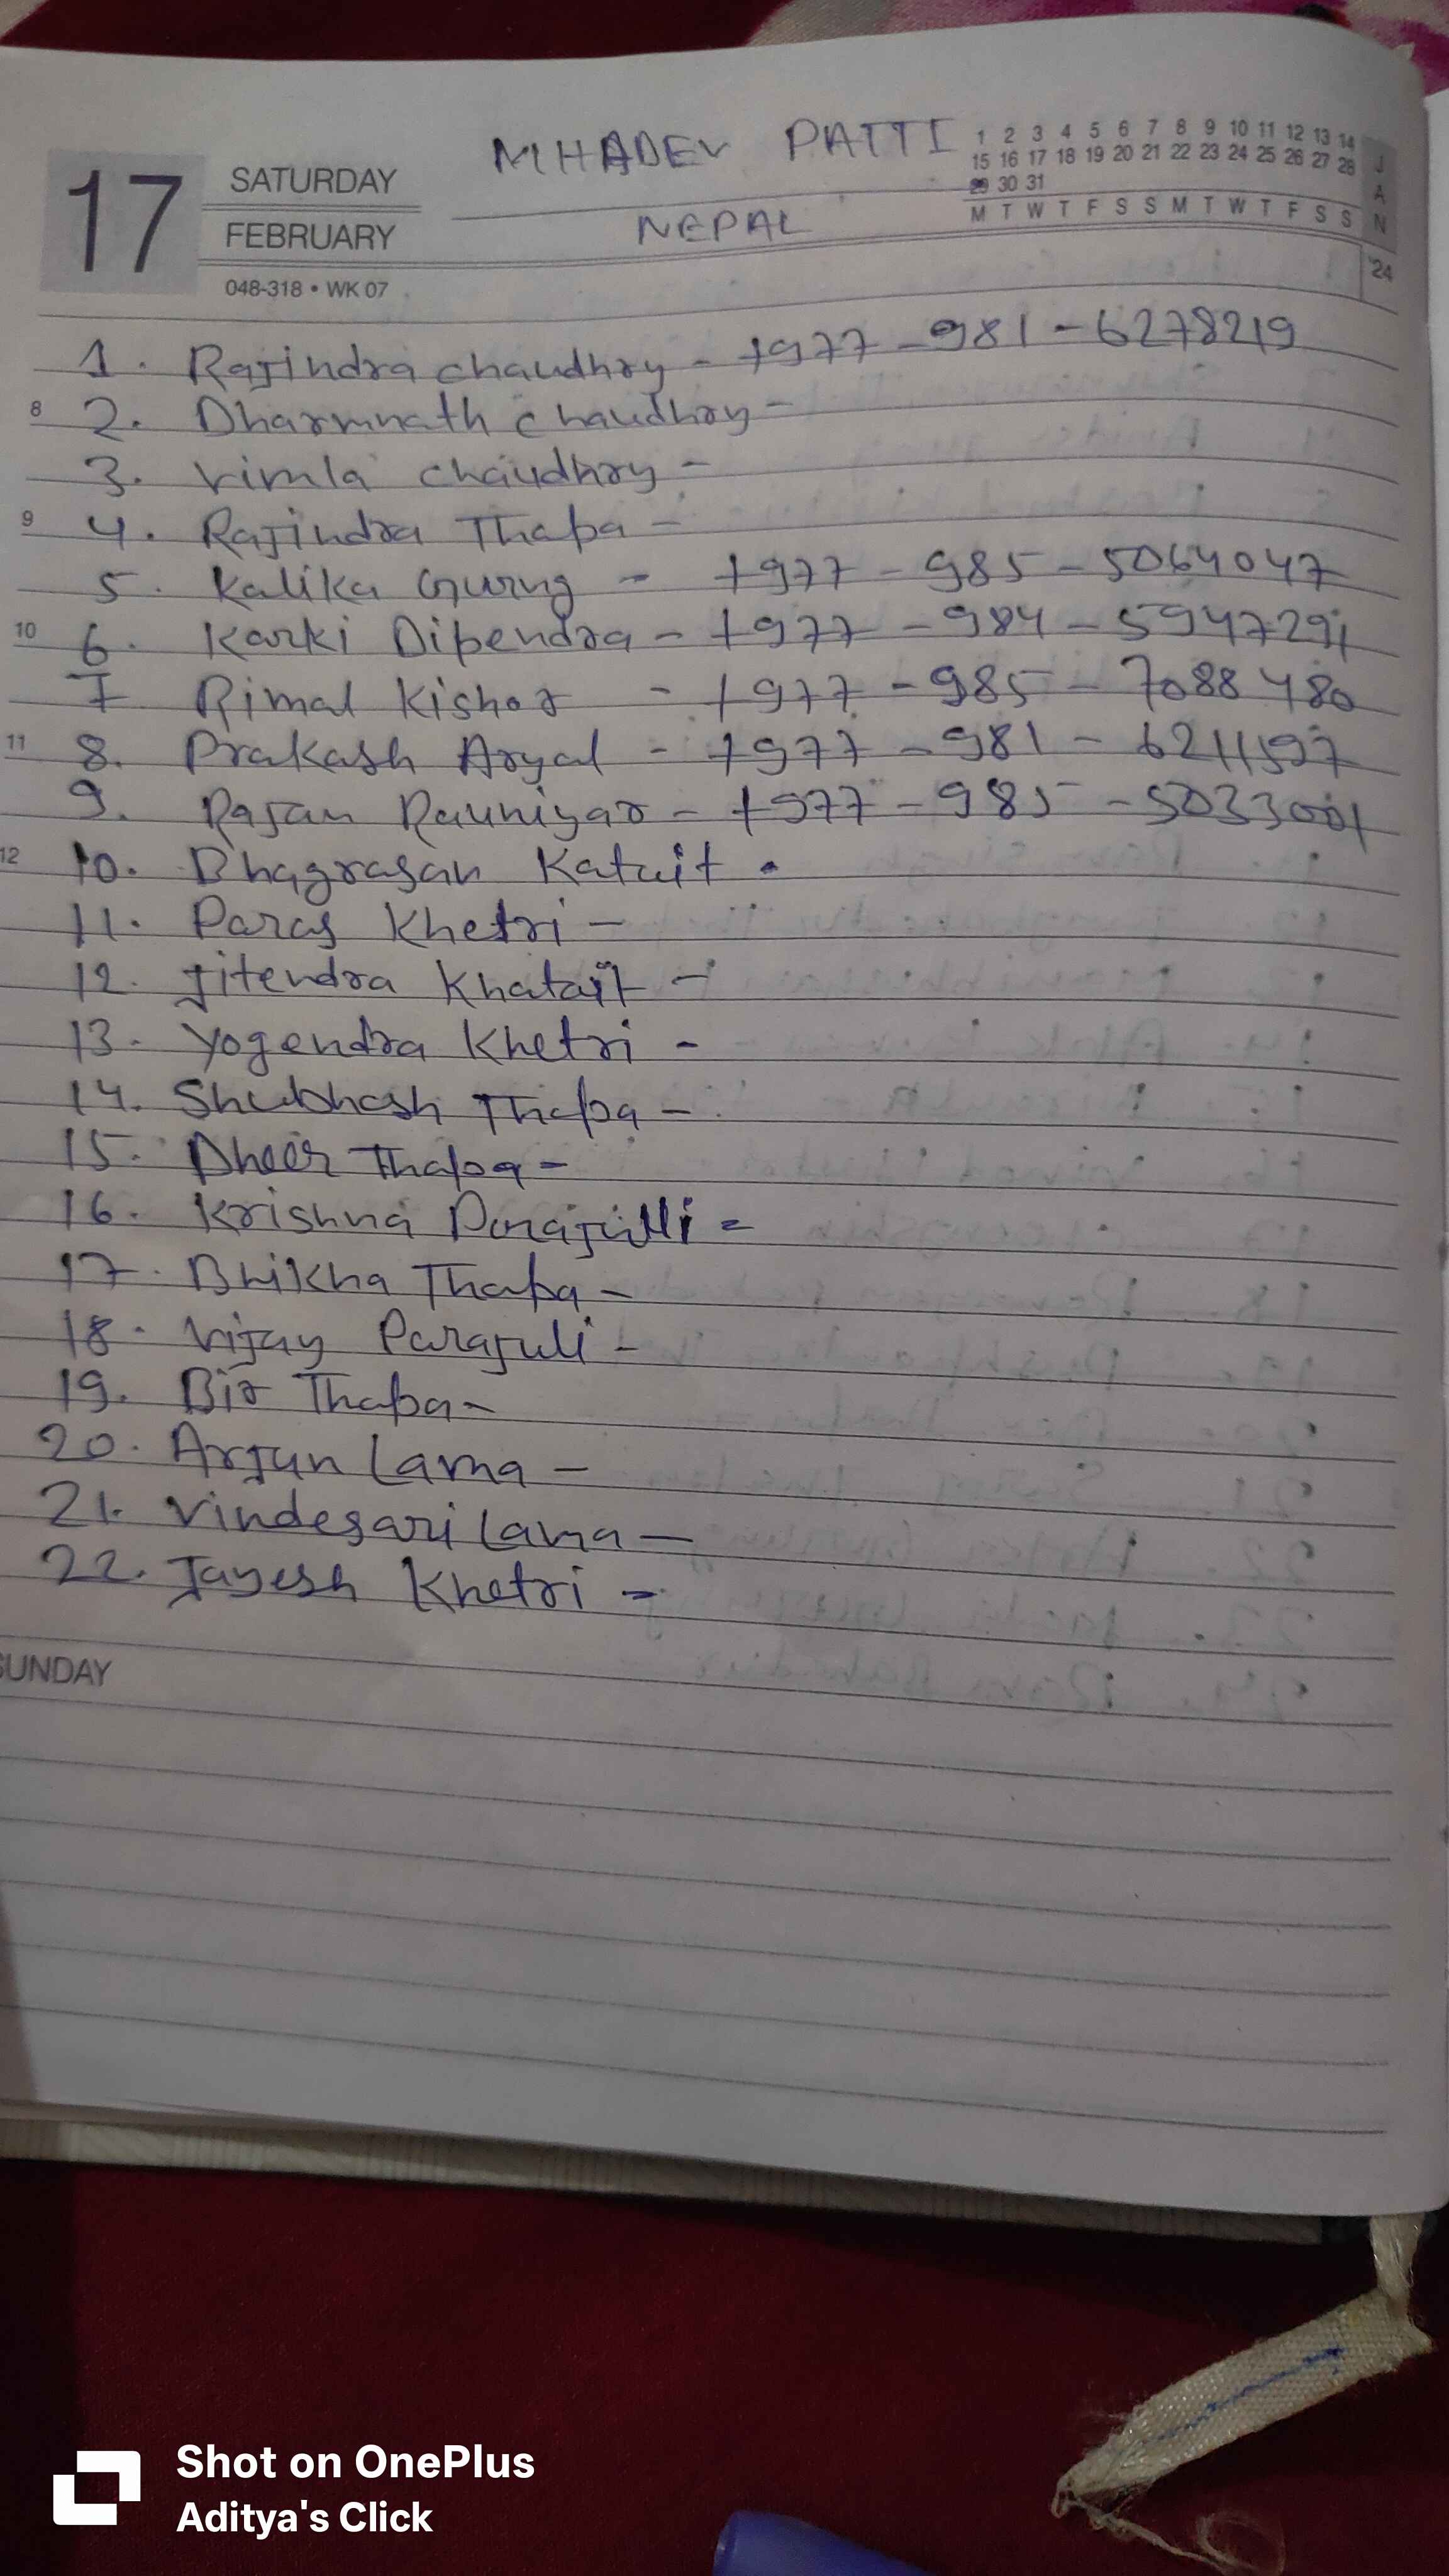 MHADEV PATTI
NEPAL
17
SATURDAY
FEBRUARY
048-318 • WK 07
1 2 3 4 5 6 7 8 9 10 11 12 13 14
15 16 17 18 19 20 21 22 23 24 25 26 27 28
29 30 31
M T W T F S S M T W T F S S
JAN
'24
1. Rajindra chaudhry - +977 - 981 - 6278219
8
2. Dharmnath chaudhry -
3. Vimla chaudhry -
9
4. Rajindra Thapa -
5. Kalika Gurng - +977 - 985 - 5064047
10
6. Karki Dipendra - +977 - 984 - 5947291
7 Rimal Kishor - +977 - 985 - 7088480
11
8. Prakash Aryal - +977 - 981 - 6211597
9. Rajan Rauniyar - +977 - 985 - 5033001
12
10. Katuit -
11. Paras Khetri -
12. Jitendra -
13. Yogendra Khetri -
14. Shubhash Thapa -
15. Dheer Thapa -
16. Krishna -
17. Bhikha Thapa -
18. Vijay Parajuli -
19. Bir Thapa -
20. Arjun Lama -
21. Vindesari Lama -
22. Jayesh Khetri -
SUNDAY
Shot on OnePlus
Aditya's Click